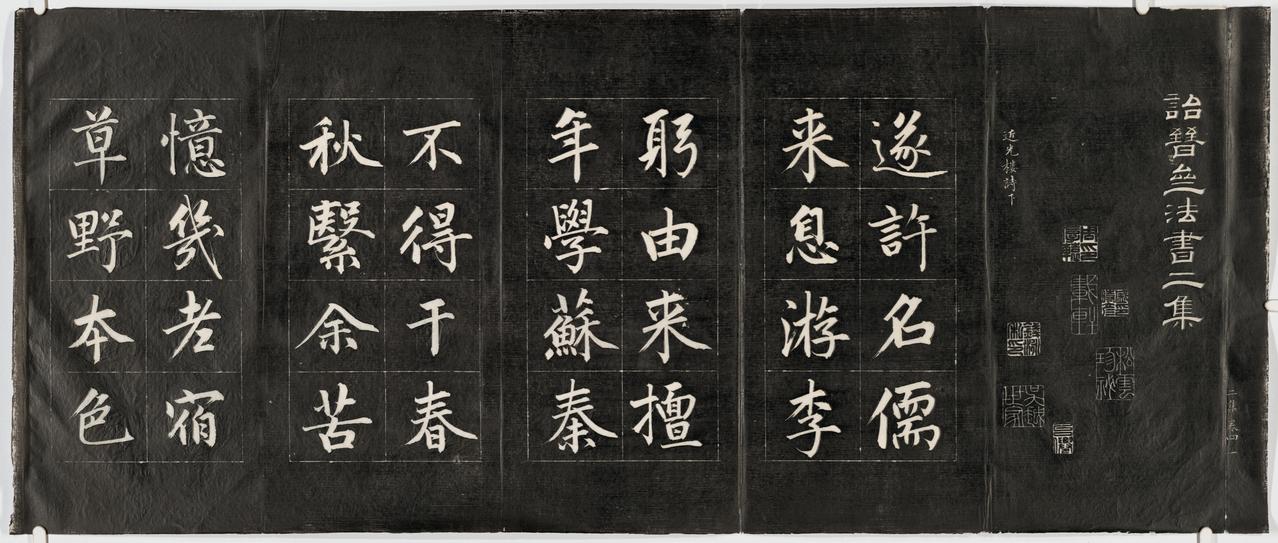 詒晉𠫵法書二集
近光樓詩下
遂許名儒
来息游李
躬由来擅
年學蘇秦
不得干春
秋繫余苦
憶幾老宿
草野本色